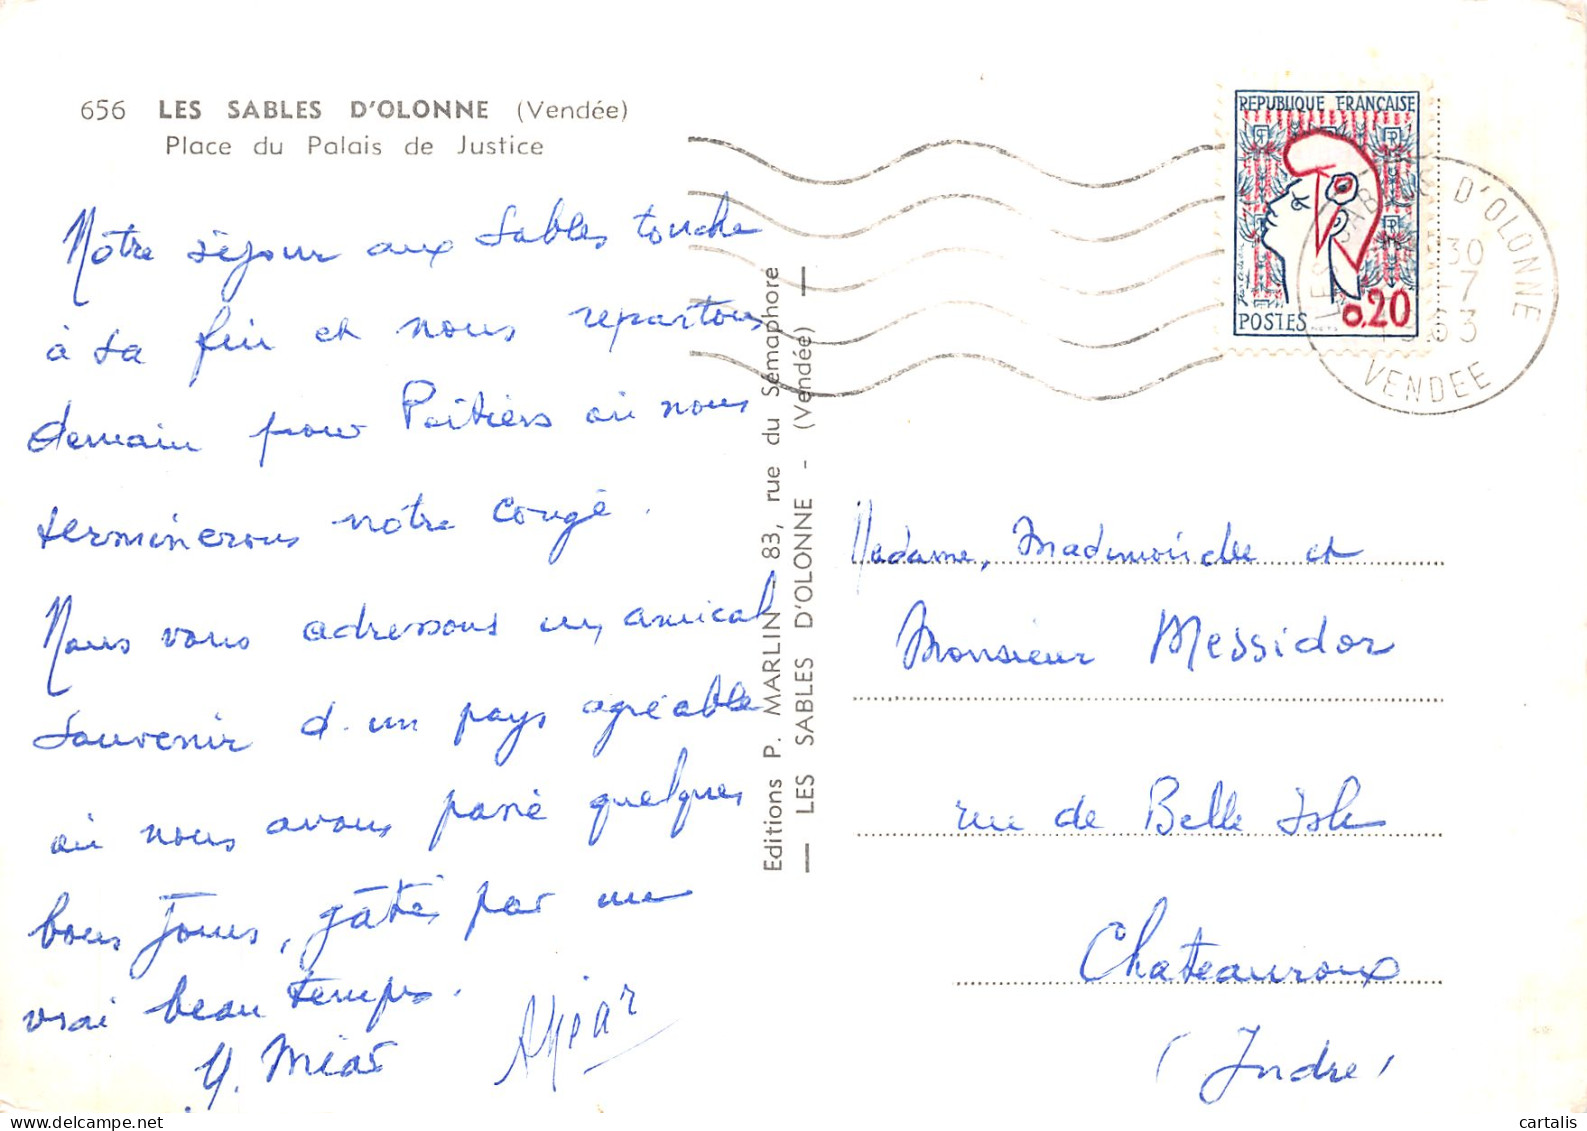 656 LES SABLES D'OLONNE (Vendée)
Place du Palais de Justice
Notre séjour aux Sables touche
à sa fin et nous repartons
demain pour Poitiers où nous
terminerons notre congé.
Nous vous adressons un amical
souvenir d'un pays agréable
où nous avons passé quelques
bons jours, gâtés par un
vrai beau temps.
Y. Miar
Editions P. MARLIN - 83, rue du Sémaphore
— LES SABLES D'OLONNE - (Vendée) —
REPUBLIQUE FRANÇAISE
POSTES 0,20
LES SABLES D'OLONNE
30
-7
1963
VENDEE
Madame, Mademoiselle et
Monsieur Messidor
rue de Belle Isle
Chateauroux
(Indre)
cartalis